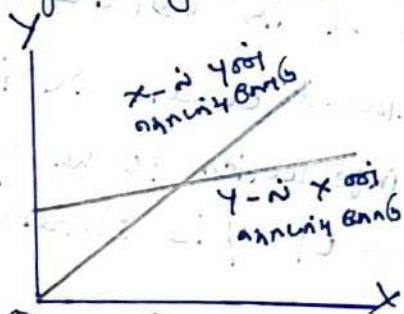 Y
X-ன் Y ன்
தொடர்பு கோடு
Y-ன் X ன்
தொடர்பு கோடு
X